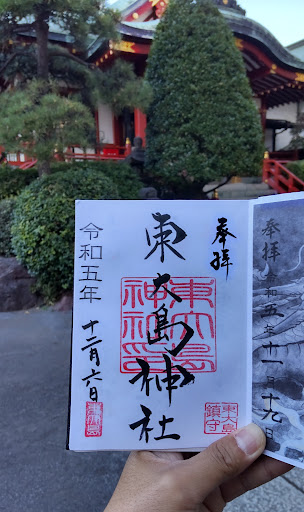 奉拝
令和五年十一月十九日
奉拝
東大島神社
東大島
鎮守
令和五年
十二月六日